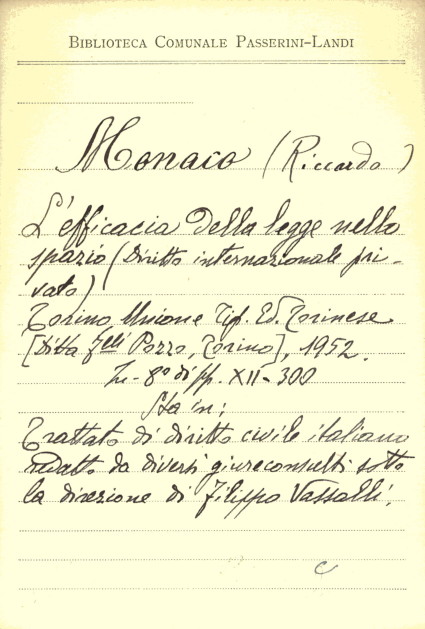 BIBLIOTECA COMUNALE PASSERINI-LANDI
Monaco (Riccardo)
L'efficacia della legge nello
spazio (Diritto internazionale pri-
vato)
Torino, Unione Tip. Ed. Torinese
[Ditta F.lli Pozzo, Torino], 1952.
In-8° di pp. XII-300
Sta in:
Trattato di diritto civile italiano
redatto da diversi giureconsulti sotto
la direzione di Filippo Vassalli.
C